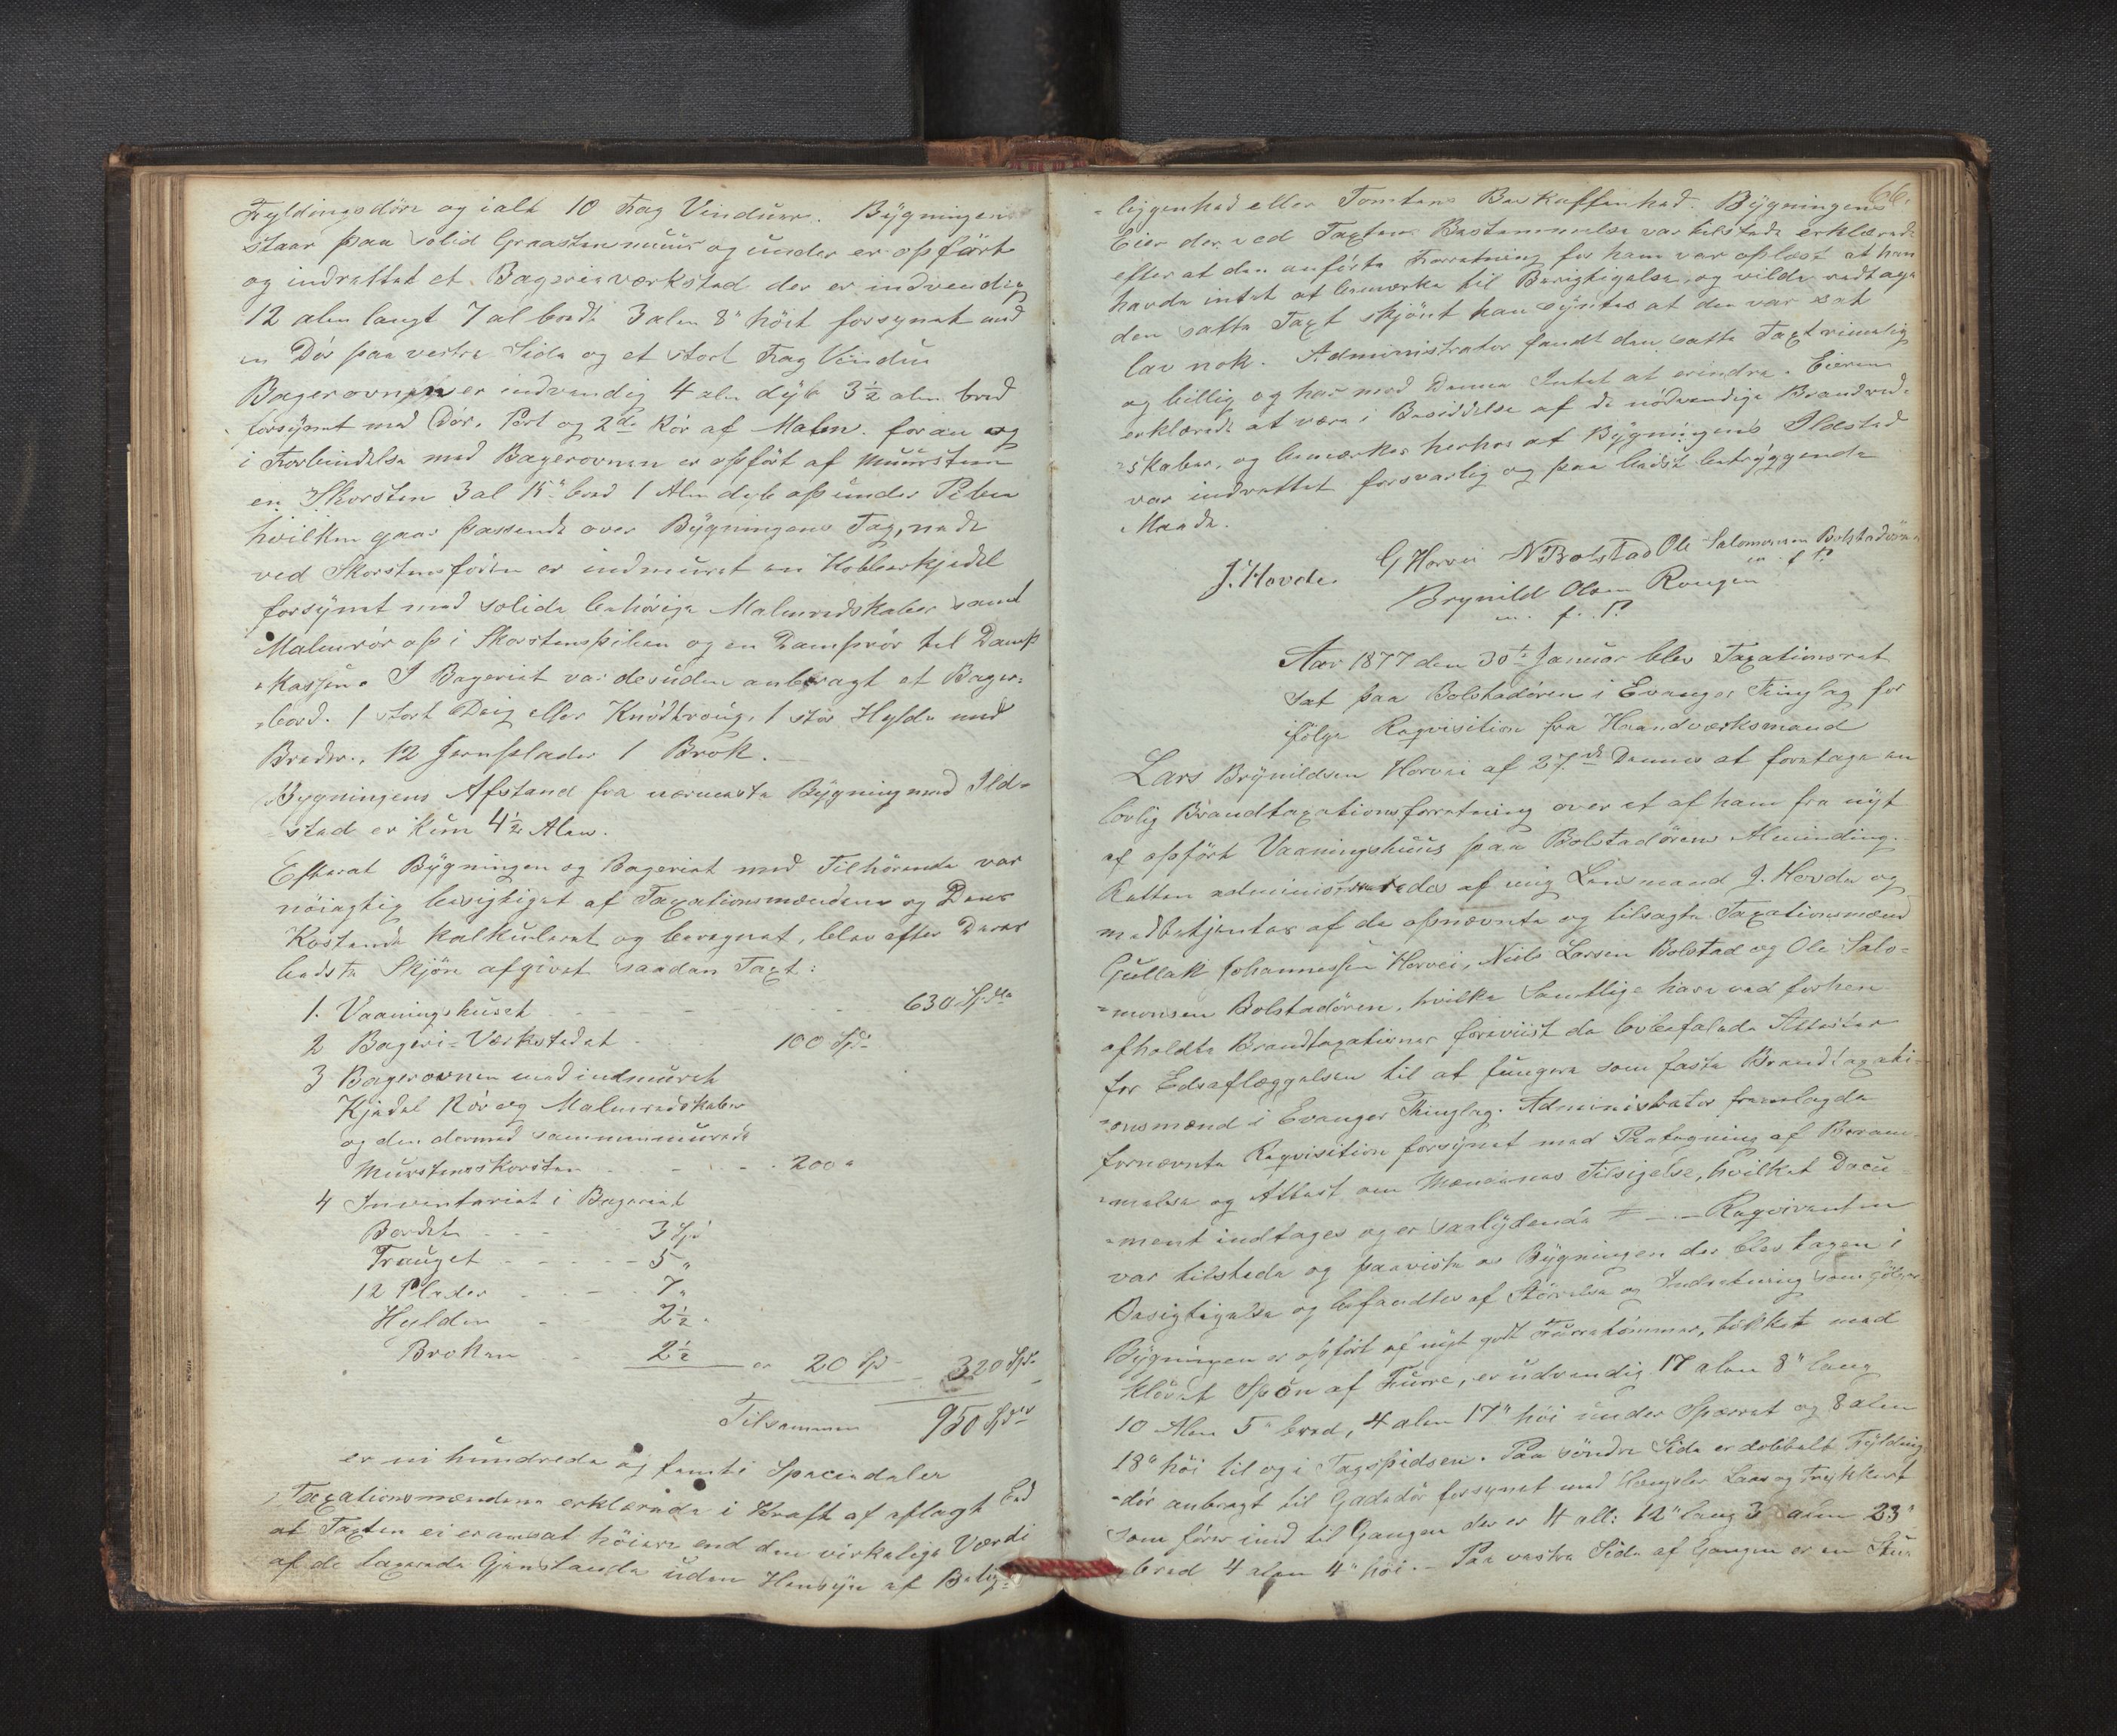 Fyldingsdøre og ialt 10 Fag Vinduer. Bygningen
staar paa solid Graastensmuur og under er opført
og indrettet et Bageriværksted der er indvendig
12 alen langt 7 al bredt 3 alen 8" høit forsynet med
en Dør paa vestre Side og et stort Fag Vindue
Bagerovnen er indvendig 4 alen dyb 3½ alen bred
forsynet med Dør, Port og 2de Rør af Malm. foran og
i Forbindelse med Bagerovnen er opført af Muursteen
en Skorsten 3 al 15" bred 1 Alen dyb op under Piben
hvilken gaar passende over Bygningens Tag, nede
ved Skorstensfoden er indmuret en Kobberkjedel
forsynet med solide behørige Malmredskaber samt
Malmrør op i Skorstenspiben og en Damprør til Damp
-kassen. I Bageriet var desuden anbragt et Bager-
-bord. 1 stort Deig eller Knødtroug, 1 stor Hylde med
Breder., 12 Jernplader 1 Brok.
Bygningens Afstand fra nærmeste Bygning med Ild-
-sted er kun 4½ Alen.
Efterat Bygningen og Bageriet med Tilhørende var
nøiagtig besigtiget af Taxationsmændene og Dens
Kostende kalkuleret og beregnet, blev efter Deres
bedste Skjøn afgivet saadan Taxt:
1. Vaaningshuset - - - - - 630 Spdlr
2 Bageri-Værkstedet - - - 100 Spd
3 Bagerovnen med indmuret
Kjedel Rør og Malmredskaber
og den dermed sammenmurede
Murstensskorsten - - - - 200 "
4 Inventariet i Bageriet
Bordet - - - 3 Spd
Trauget - - - - - 5 "
12 Plader - - - - 7 "
Hylden - 2½ "
Brokken - 2½ er 20 Spd - 320 Spdr
Tilsammen 950 Spdlr
er ni hundrede og femti Speciedaler
Taxationsmændene erklærede i Kraft af aflagt Eed
at Taxten ei er ansat høiere end den virkelige Værdi
af de taxerede Gjenstande uden Hensyn af Belig-
66.
-liggenhed eller Tomtens Beskaffenhed Bygningens
Eier der ved Taxtens Bestemmelse var tilstede erklærede
efter at den anførte Forretning for ham var oplæst at han
havde intet at bemærke til Berigtigelse, og vilde vedtage
den satte Taxt skjønt han syntes at den var sat
lav nok. Administrator fandt den satte Taxt rimelig
og billig og har mod Denne Intet at erindre. Eieren
erklærede at være i Besiddelse af de nødvendige Brandred-
-skaber, og bemærkes herhos at Bygningens Ildsted
var indrettet forsvarlig og paa bedst betryggende
Maade.
J. Hovde. G Horvei N Bolstad Ole Salomonsen Bolstadøren
m. f. P.
Brynild Olsen Rongen
m. f. P.
Aar 1877 den 30te Januar blev Taxationsret
sat paa Bolstadøren i Evanger Thinglag for
ifølge Reqvisition fra Haandværksmand
Lars Brynildsen Horvei af 27de Dennes at foretage en
lovlig Brandtaxationsforretning over et af ham fra nyt
af opført Vaaningshuus paa Bolstadørens Alminding.
Retten administreredes af mig Lensmand J. Hovde og
medbetjentes af de opnævnte og tilsagte Taxationsmænd
Gullak Johannessen Horvei, Niels Larsen Bolstad og Ole Salo-
-monsen Bolstadøren, hvilke Samtlige have ved forhen
afholdte Brandtaxationer foreviist de lovbefalede Attester
for Edsaflæggelsen til at fungere som faste Brandtaxati-
-onsmænd i Evanger Thinglag. Administrator fremlagde
fornævnte Reqvisition forsynet med Paategning af Beram-
-melse og Attest om Mændenes Tilsigelse, hvilket Docu
-ment indtages og er saalydende = - . - Reqvirenten
var tilstede og paaviste os Bygningen der blev tagen i
Besigtigelse og befandtes af Størrelse og Indretning som følger
Bygningen er opført af nyt godt Furretømmer, tækket med
kløvet Spon af Furre, er udvendig 17 alen 8" lang
10 Alen 5" bred, 4 alen 17" høi under Sperret og 8 alen
18" høi til og i Tagspidsen. Paa søndre Side er dobbelt Fyldning
-dør anbragt til Gadedør forsynet med Hengsler Laas og Trykkert
som fører ind til Gangen der er 4 all: 12" lang 3 alen 23"
bred 4 alen 4" høi. - Paa vestre Side af Gangen er en Stue